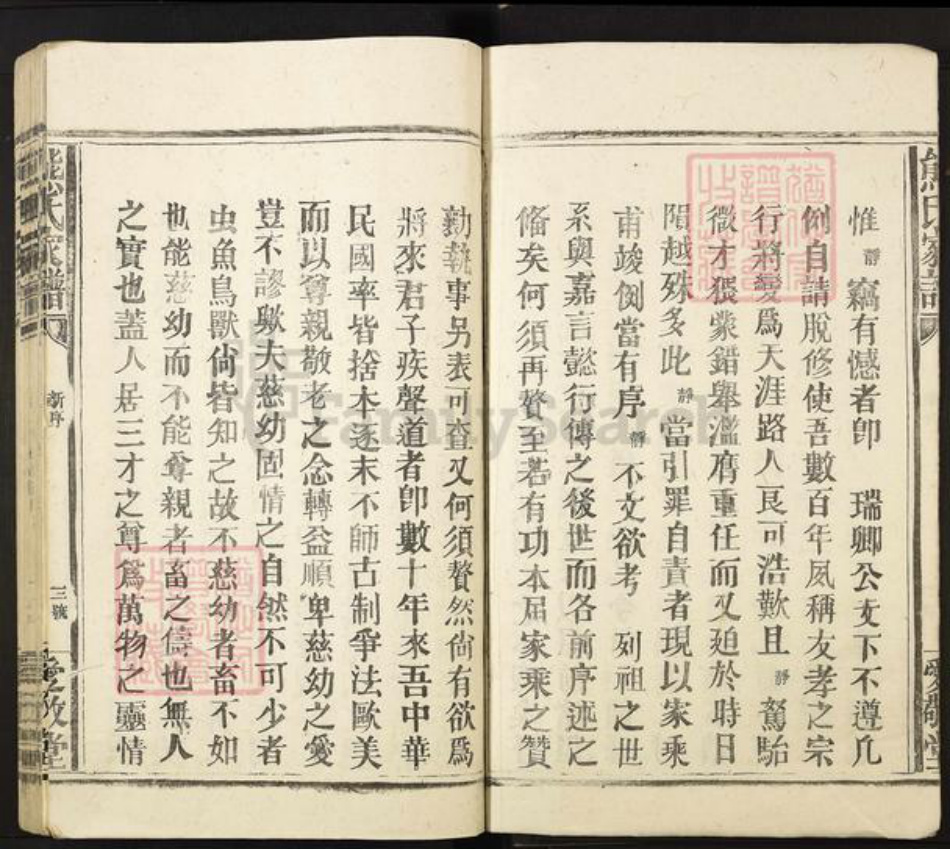 惟靜竊有憾者卽 瑞卿公支下不遵凡
例自請脫修使吾數百年夙稱友孝之宗
行將變爲天涯路人良可浩歎且靜駑駘
微才猥蒙錯舉濫膺重任而又廹於時日
隕越殊多此靜當引罪自責者現以家乘
甫竣例當有序靜不文欲考 列祖之世
系與嘉言懿行傳之後世而各前序述之
偹矣何須再贅至若有功本屆家乘之贊
勷執事另表可查又何須贅然尙有欲爲
將來君子疾聲道者卽數十年來吾中華
民國率皆捨本逐末不師古制爭法歐美
而以尊親敬老之念轉益順卑慈幼之愛
豈不謬歟夫慈幼固情之自然不可少者
虫魚鳥獸尙皆知之故不慈幼者畜不如
也能慈幼而不能尊親者畜之儔也無人
之實也蓋人居三才之尊爲萬物之靈情
熊氏家譜
新序
三號
愛敬堂
FamilySearch